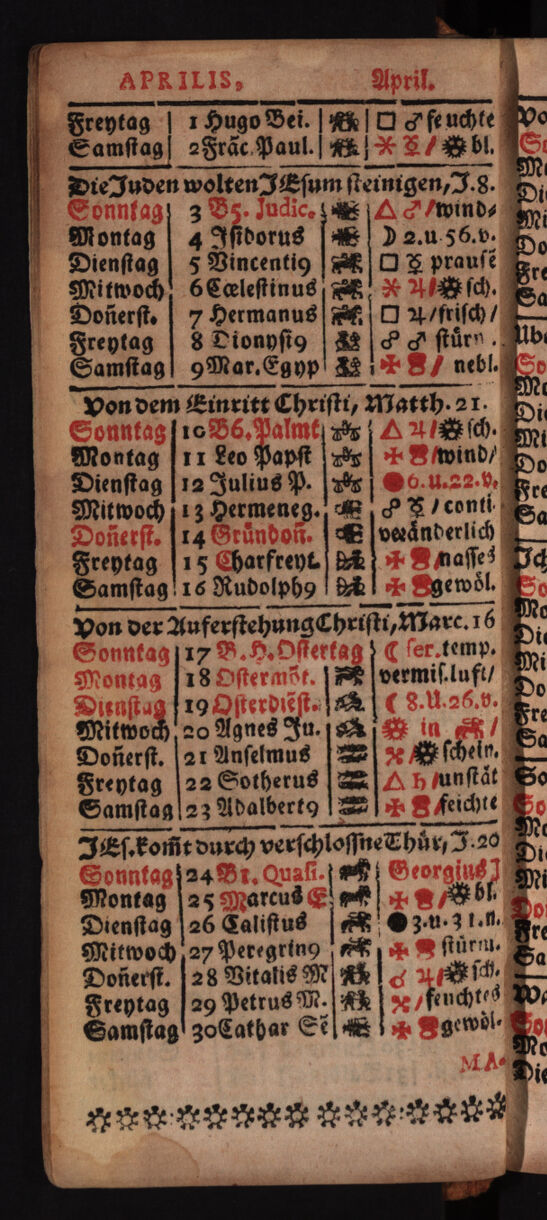 APRILIS, April.
Freytag 1 Hugo Bei. □ ♂ feuchte
Samstag 2 Fräc. Paul. ⚹ ☿ / bl.
Die Juden wolten JEsum steinigen, J. 8.
Sonntag 3 B5. Judic. △ ♂ / wind⸗
Montag 4 Isidorus ☽ 2. u. 56. v.
Dienstag 5 Vincentiꝰ □ ☿ prausē
Mitwoch 6 Cœlestinus ⚹ ♃ / sch.
Don̄erst. 7 Hermanus □ ♃ / frisch /
Freytag 8 Dionysiꝰ ☍ ♂
Samstag 9 Mar. Egyp / nebl.
Von dem Einritt Christi, Matth. 21.
Sonntag 10 B6. Palmt △ ♃ / sch.
Montag 11 Leo Papst / wind /
Dienstag 12 Julius P. ● 6. u. 22. v.
Mitwoch 13 Hermeneg. ☍ ☿ / conti
Don̄erst. 14 Gründon̄. veränderlich
Freytag 15 Charfreyt. / nasses
Samstag 16 Rudolphꝰ gewöl.
Von der Auferstehung Christi, Marc. 16
Sonntag 17 B. H. Ostertag ☾ fer. temp.
Montag 18 Ostermōt. vermis. luft /
Dienstag 19 Osterdiēst. ☾ 8. U. 26. v.
Mitwoch 20 Agnes Ju. in /
Don̄erst. 21 Anselmus / schein.
Freytag 22 Sotherus △ ♄ / unstät
Samstag 23 Adalbertꝰ / feichte
JEs. kom̄t durch verschlossne Thür, J. 20
Sonntag 24 B1. Quasi. Georgius
Montag 25 Marcus E / bl.
Dienstag 26 Calistus ● 3. u. 31. n.
Mitwoch 27 Peregrinꝰ stürm.
Don̄erst. 28 Vitalis M ☌ ♃ / sch.
Freytag 29 Petrus M. / feuchtes
Samstag 30 Cathar Sē gewöl.
MA⸗